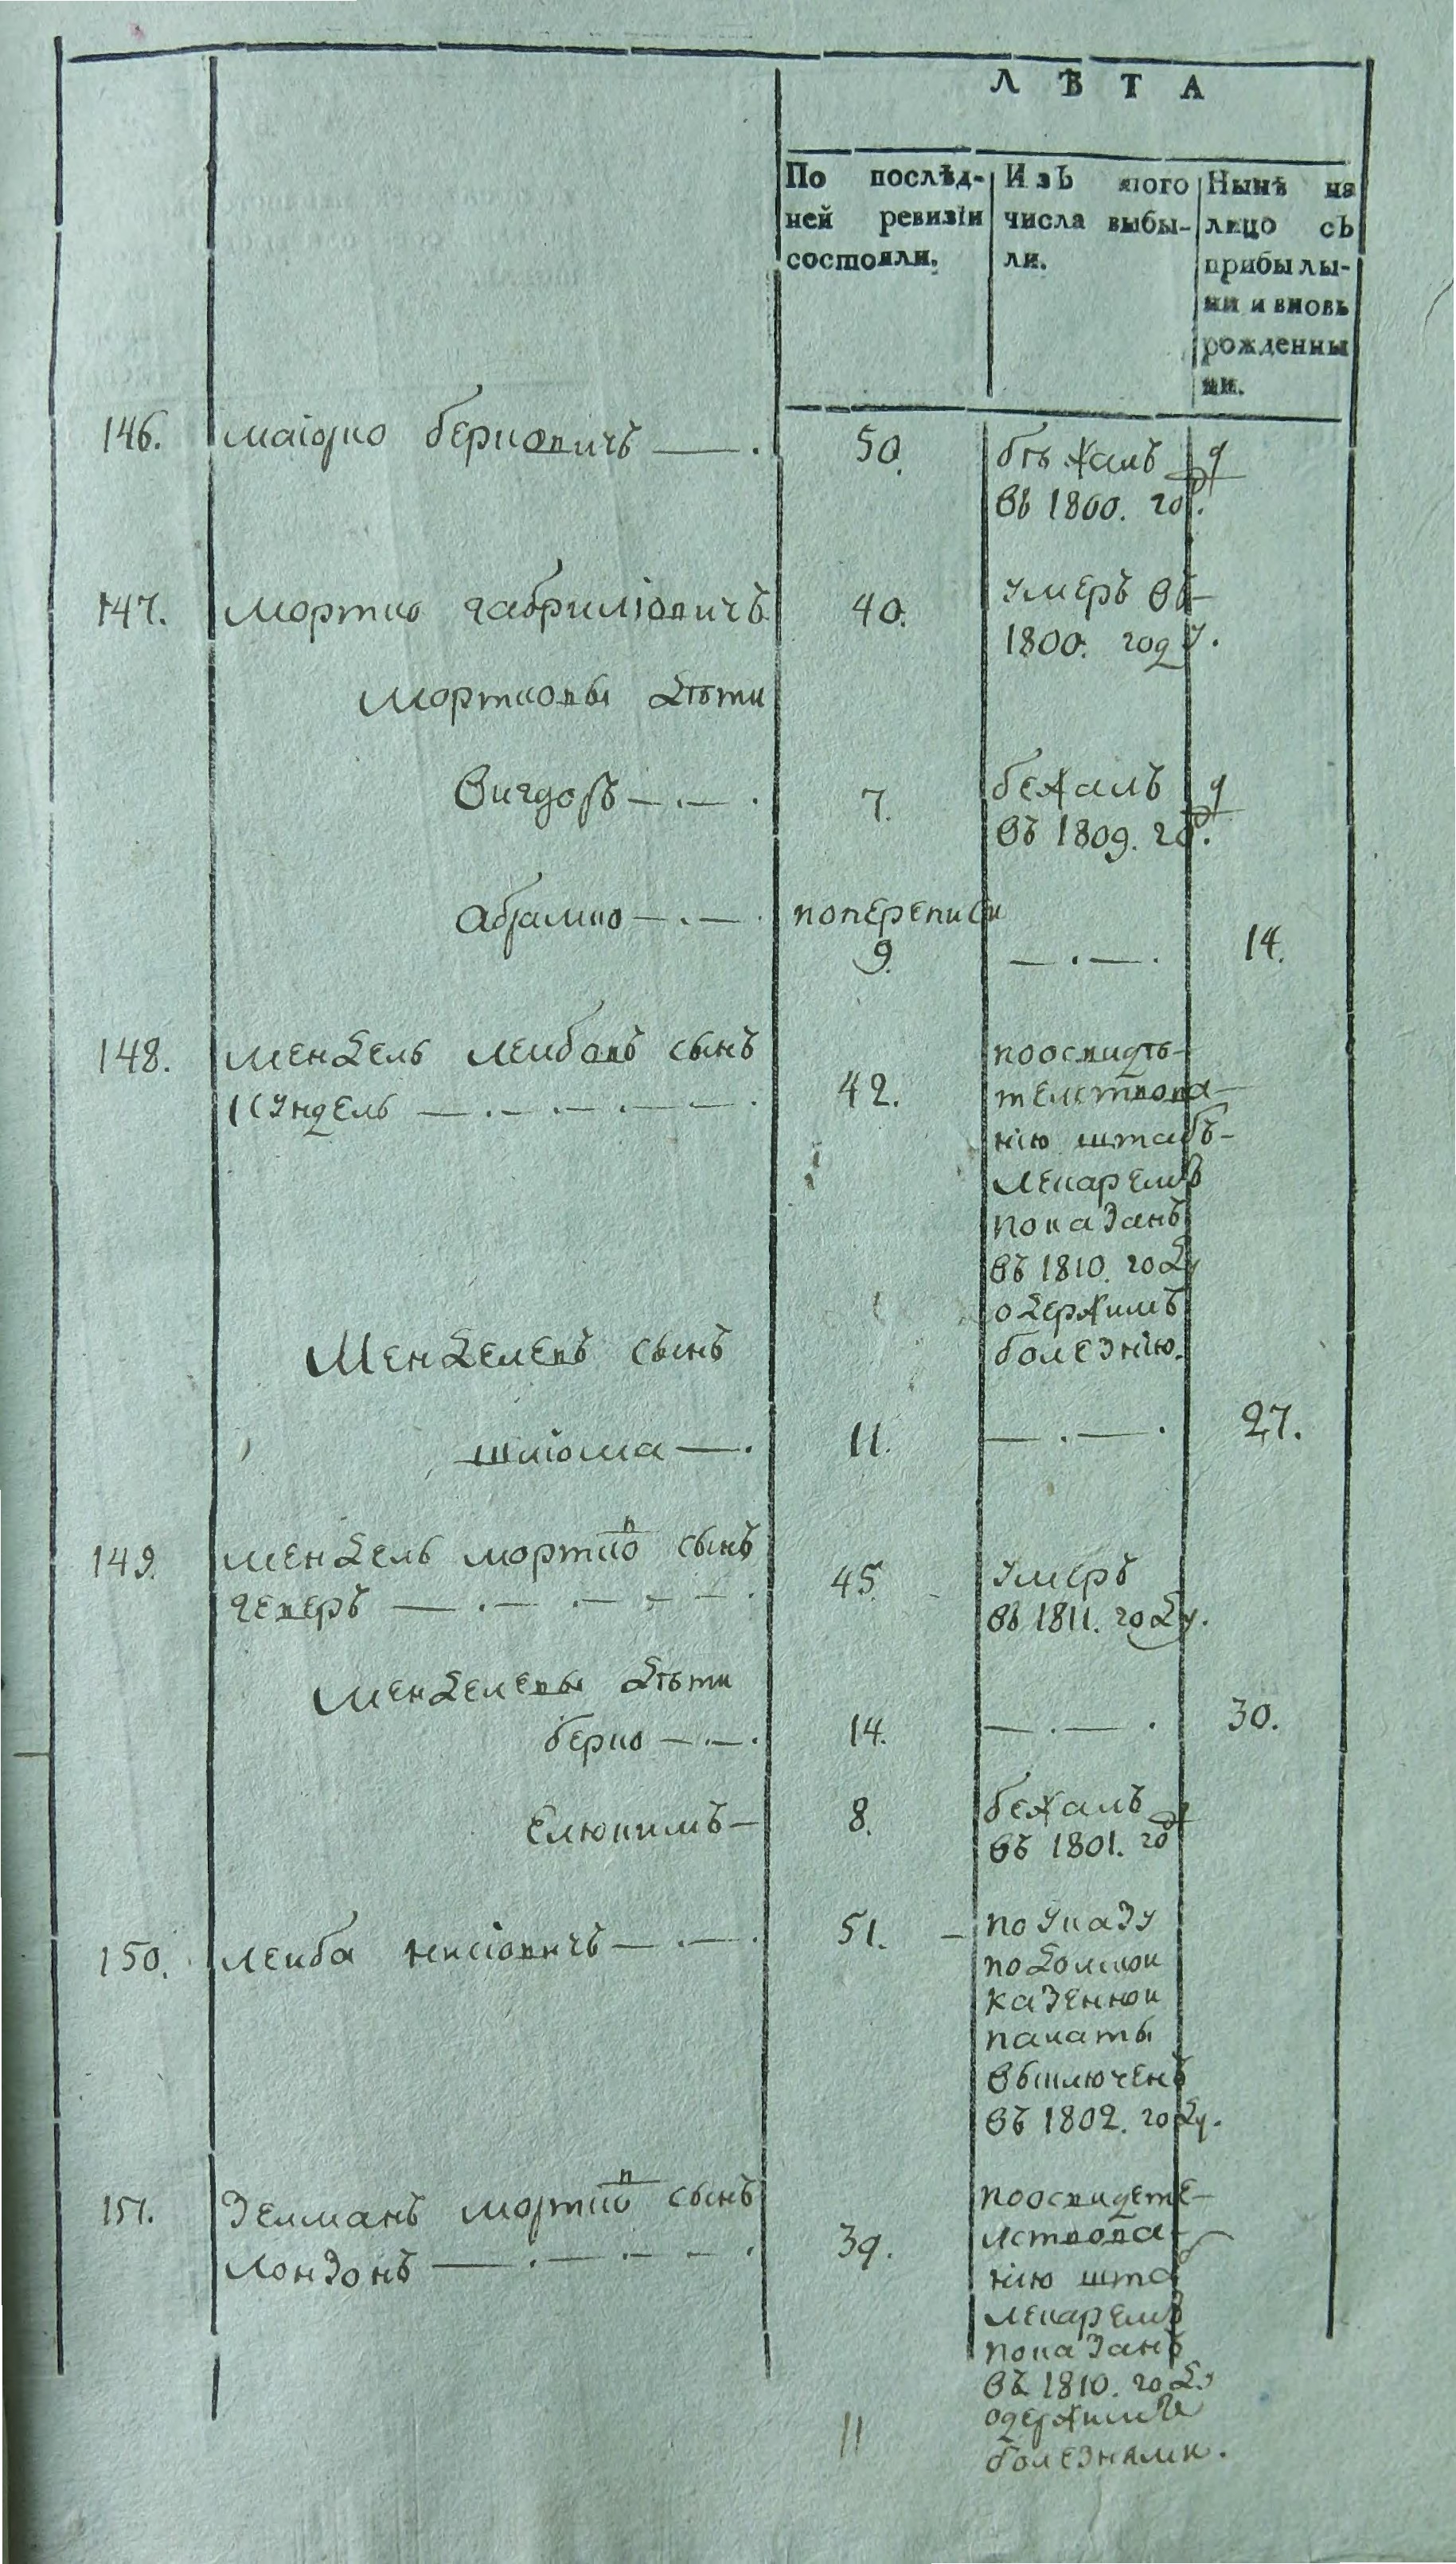 ЛѢТА
По послѣд-
ней ревизіи
состояли.
Изъ того
числа выбы-
ли.
Нынѣ на
лицо съ
прибылы-
ми и вновь
рожденны
ми.
146. маіорко берковичъ — . 50. бѣжалъ
въ 1800. год.
147. мортко габриліовичъ 40. умеръ въ
1800. году.
мортковы дѣти
Вигдоръ — . — . 7. бежалъ
въ 1809. год.
абрамко — . — . по переписи
9. — . — . 14.
148. мендель лейбовъ сынъ
кундель — . — . — . — . 42. по освидѣ-
телствова-
нію штабъ-
лекаремъ
показанъ
въ 1810. году
одержимъ
болезнію.
Менделевъ сынъ
шліома — . 11. — . — . 27.
149. мендель мортков сынъ
геверъ — . — . — . — . 45 умеръ
въ 1811. году.
менделевы дѣти
берко — . — . 14. — . — . 30.
Елюкимъ — 8. бежалъ
въ 1801. год
150. лейба нисіовичъ — . — . 51. — по указу
подолской
казенной
палаты
выключенъ
въ 1802. году.
151. Зелманъ мортков сынъ
лонзонъ — . — . — . 39. по освидете-
лствова-
нію штаб
лекаремъ
показанъ
въ 1810. году
одержимъ
болезнями.
11